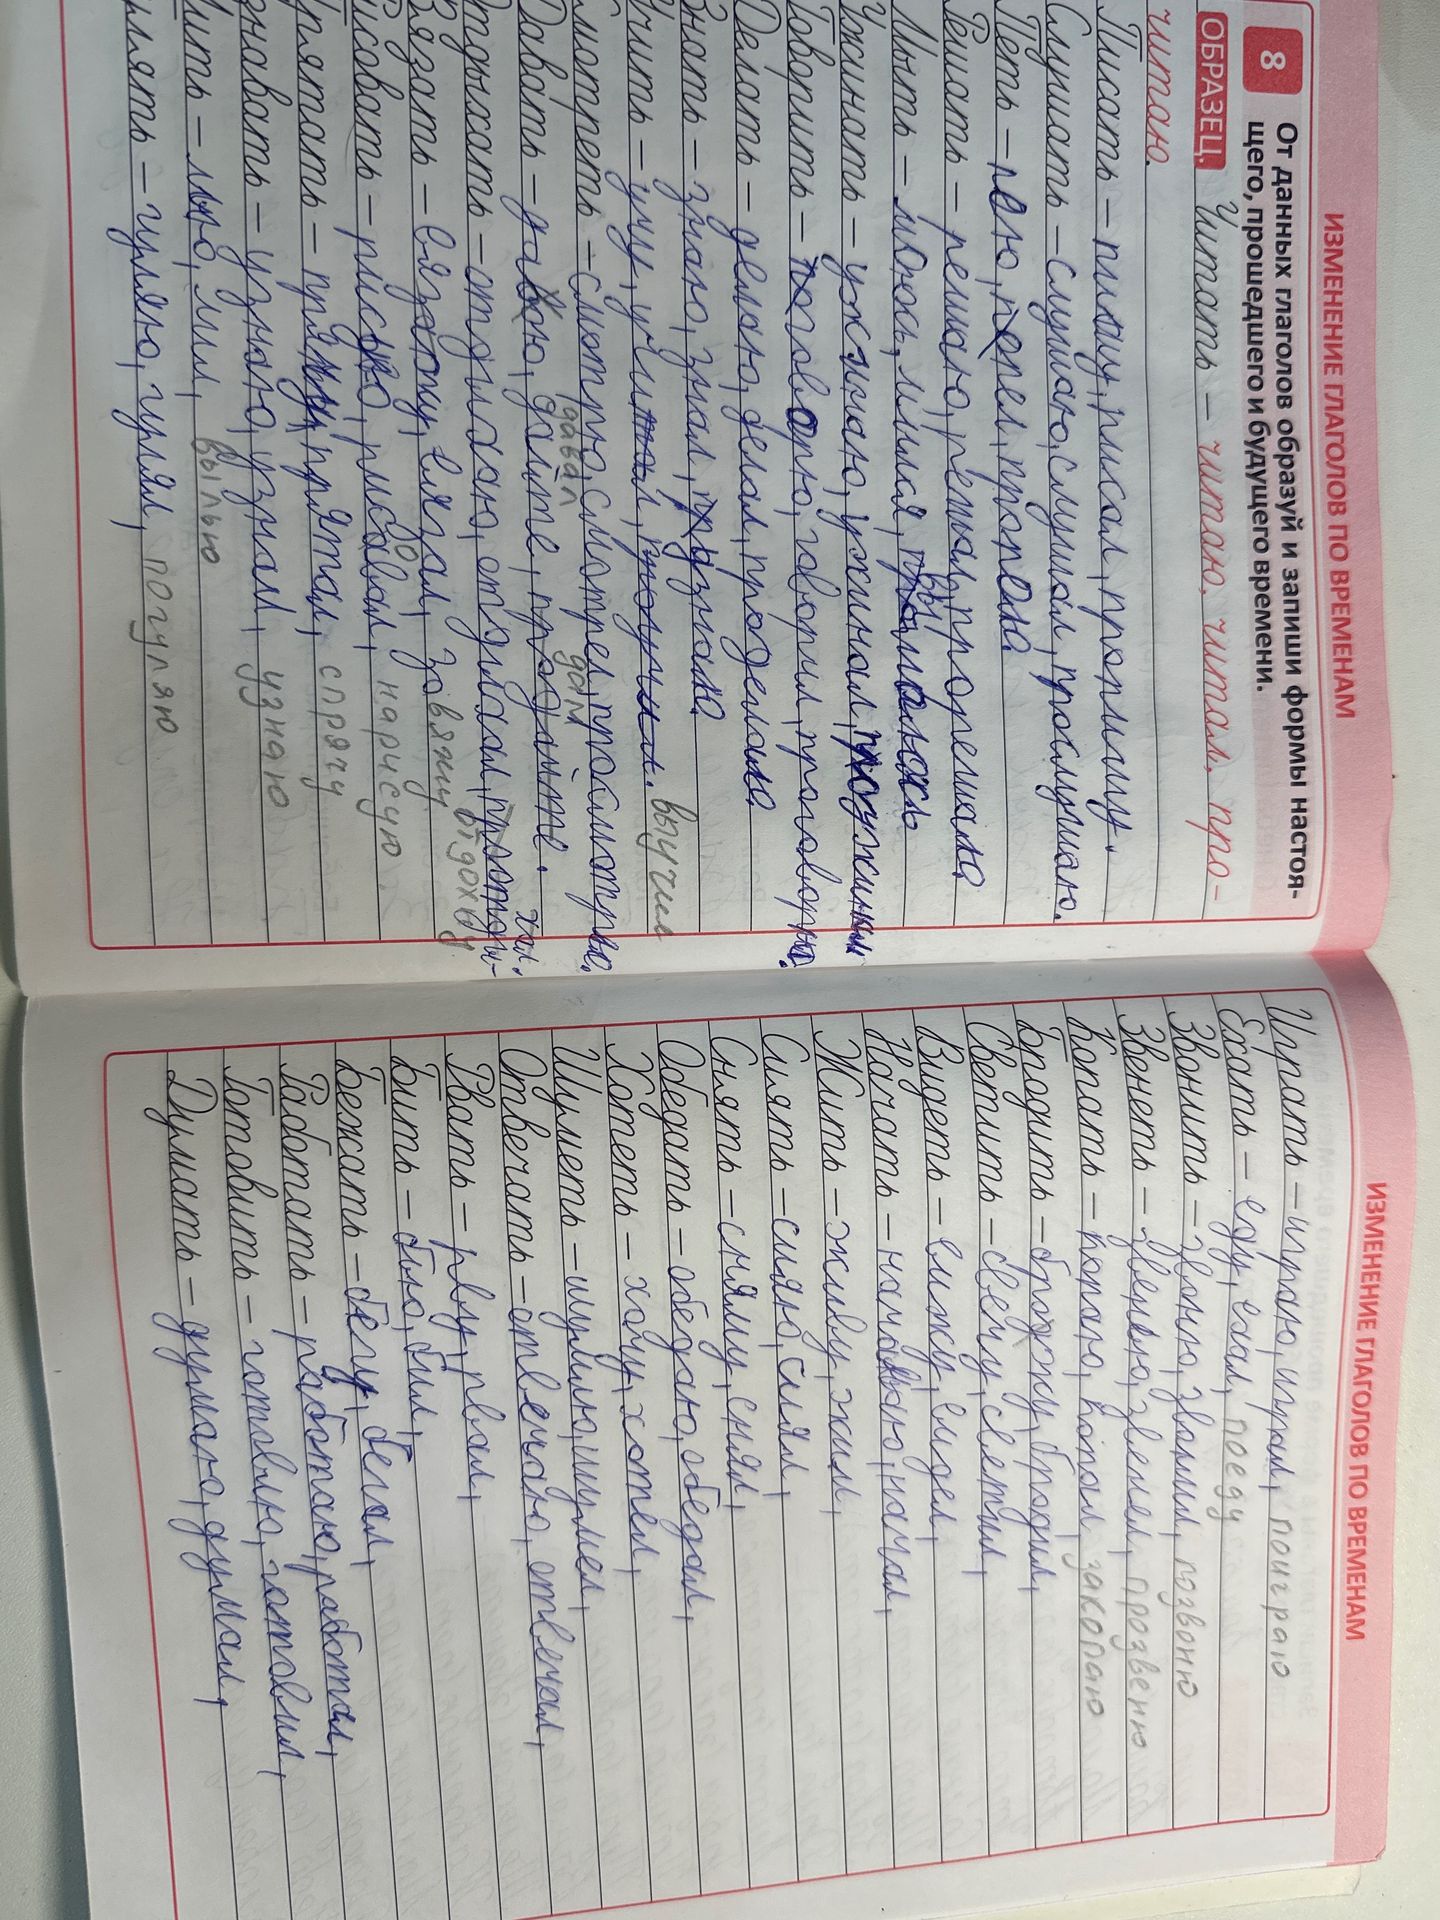 ИЗМЕНЕНИЕ ГЛАГОЛОВ ПО ВРЕМЕНАМ
8 От данных глаголов образуй и запиши формы настоя-
щего, прошедшего и будущего времени.
ОБРАЗЕЦ. Читать – читаю, читал, про-
читаю.
Писать – пишу, писал, пропишу.
Слушать – слушаю, слушал, прослушаю.
Петь – пою, пел, пропела
Решать – решаю, решал, прорешала
Мыть – моюсь, мылся,
Ужинать – ужинаю, ужинал,
Говорить – говорю, говорил, проговорю.
Делать – делаю, делал, проделала
Знать – знаю, знал, узнала
Учить – учу, учил, выучил
Смотреть – смотрю, смотрел, просмотрю.
Давать – даю, давал дам
Отдыхать – отдыхаю, отдыхал, отдохну
Вязать – вяжу, вязал, завяжу
Рисовать – рисую, рисовал, нарисую
Прятать – прячу, прятал, спрячу
Узнавать – узнаю, узнал, узнаю
Лить – лью, лил, вылью
Гулять – гуляю, гулял, погуляю
ИЗМЕНЕНИЕ ГЛАГОЛОВ ПО ВРЕМЕНАМ
Играть – играю, играл, поиграю
Ехать – еду, ехал, поеду
Звонить – звоню, звонил, позвоню
Звенеть – звеню, звенел, прозвеню
Копать – копаю, копал, закопаю
Бродить – брожу, бродил,
Светить – свечу, светил,
Видеть – вижу, видел,
Начать – начаю, начал,
Жить – живу, жил,
Сиять – сияю, сиял,
Снять – сниму, снял,
Обедать – обедаю, обедал,
Хотеть – хочу, хотел,
Шуметь – шумлю, шумел,
Отвечать – отвечаю, отвечал,
Рвать – рву, рвал,
Бить – бью, бил,
Бежать – бегу, бегал,
Работать – работаю, работал,
Готовить – готовлю, готовил,
Думать – думаю, думал,